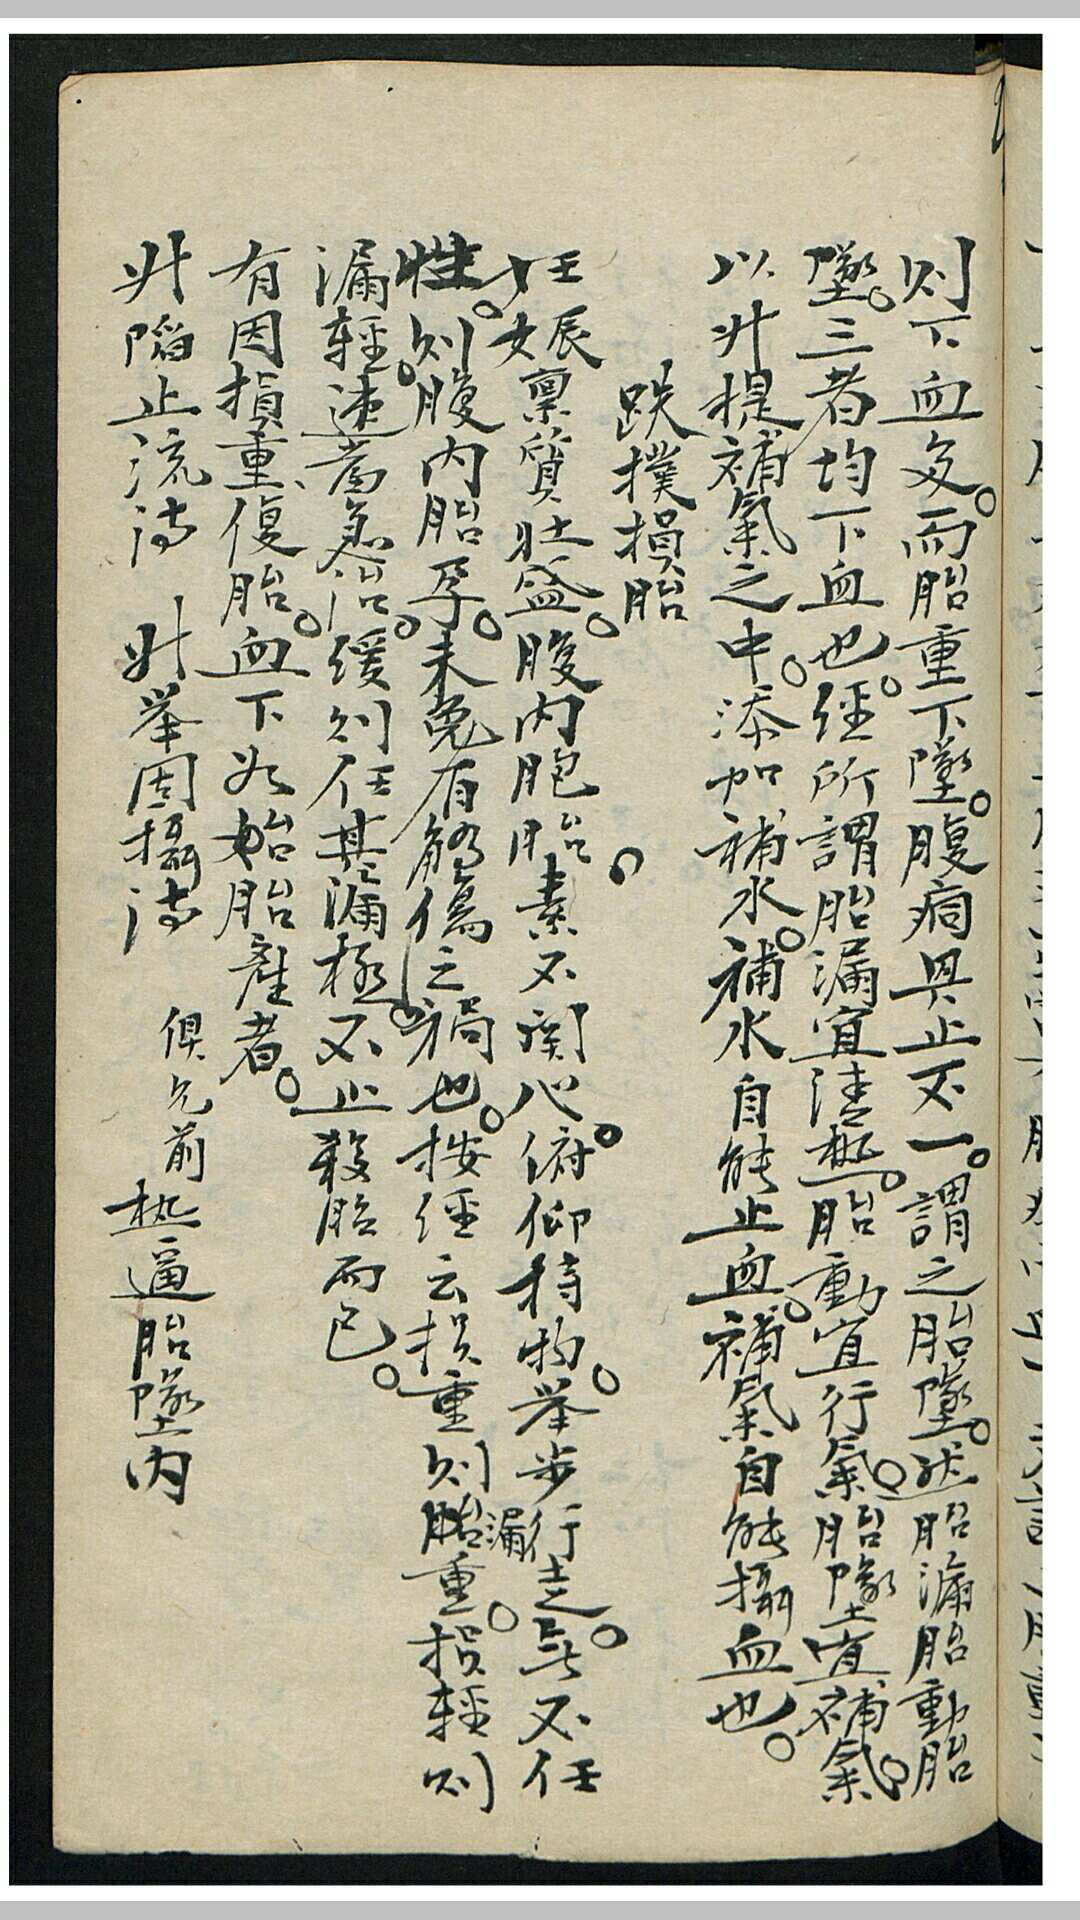 則下血多。而胎重下墜。腹痛與止不一。謂之胎墜。然胎漏胎動胎
墜。三者均下血也。經所謂胎漏宜清熱。胎動宜行氣。胎墜宜補氣。
以升提補氣之中。添加補水。補水自能止血。補氣自能攝血也。
跌撲損胎
妊娠稟質壯盛。腹內胞胎。素不関心。俯仰持物。举步行走。無不任
性。則腹內胎孕。未免有觸傷之禍也。按經云損重則胎漏重。損輕則
漏輕。速為急治。緩則任其漏極。不止殺胎而已。
有因損重復胎。血下如始胎產者。
升陷止流法 升举固攝法 俱見前 热逼胎墜內